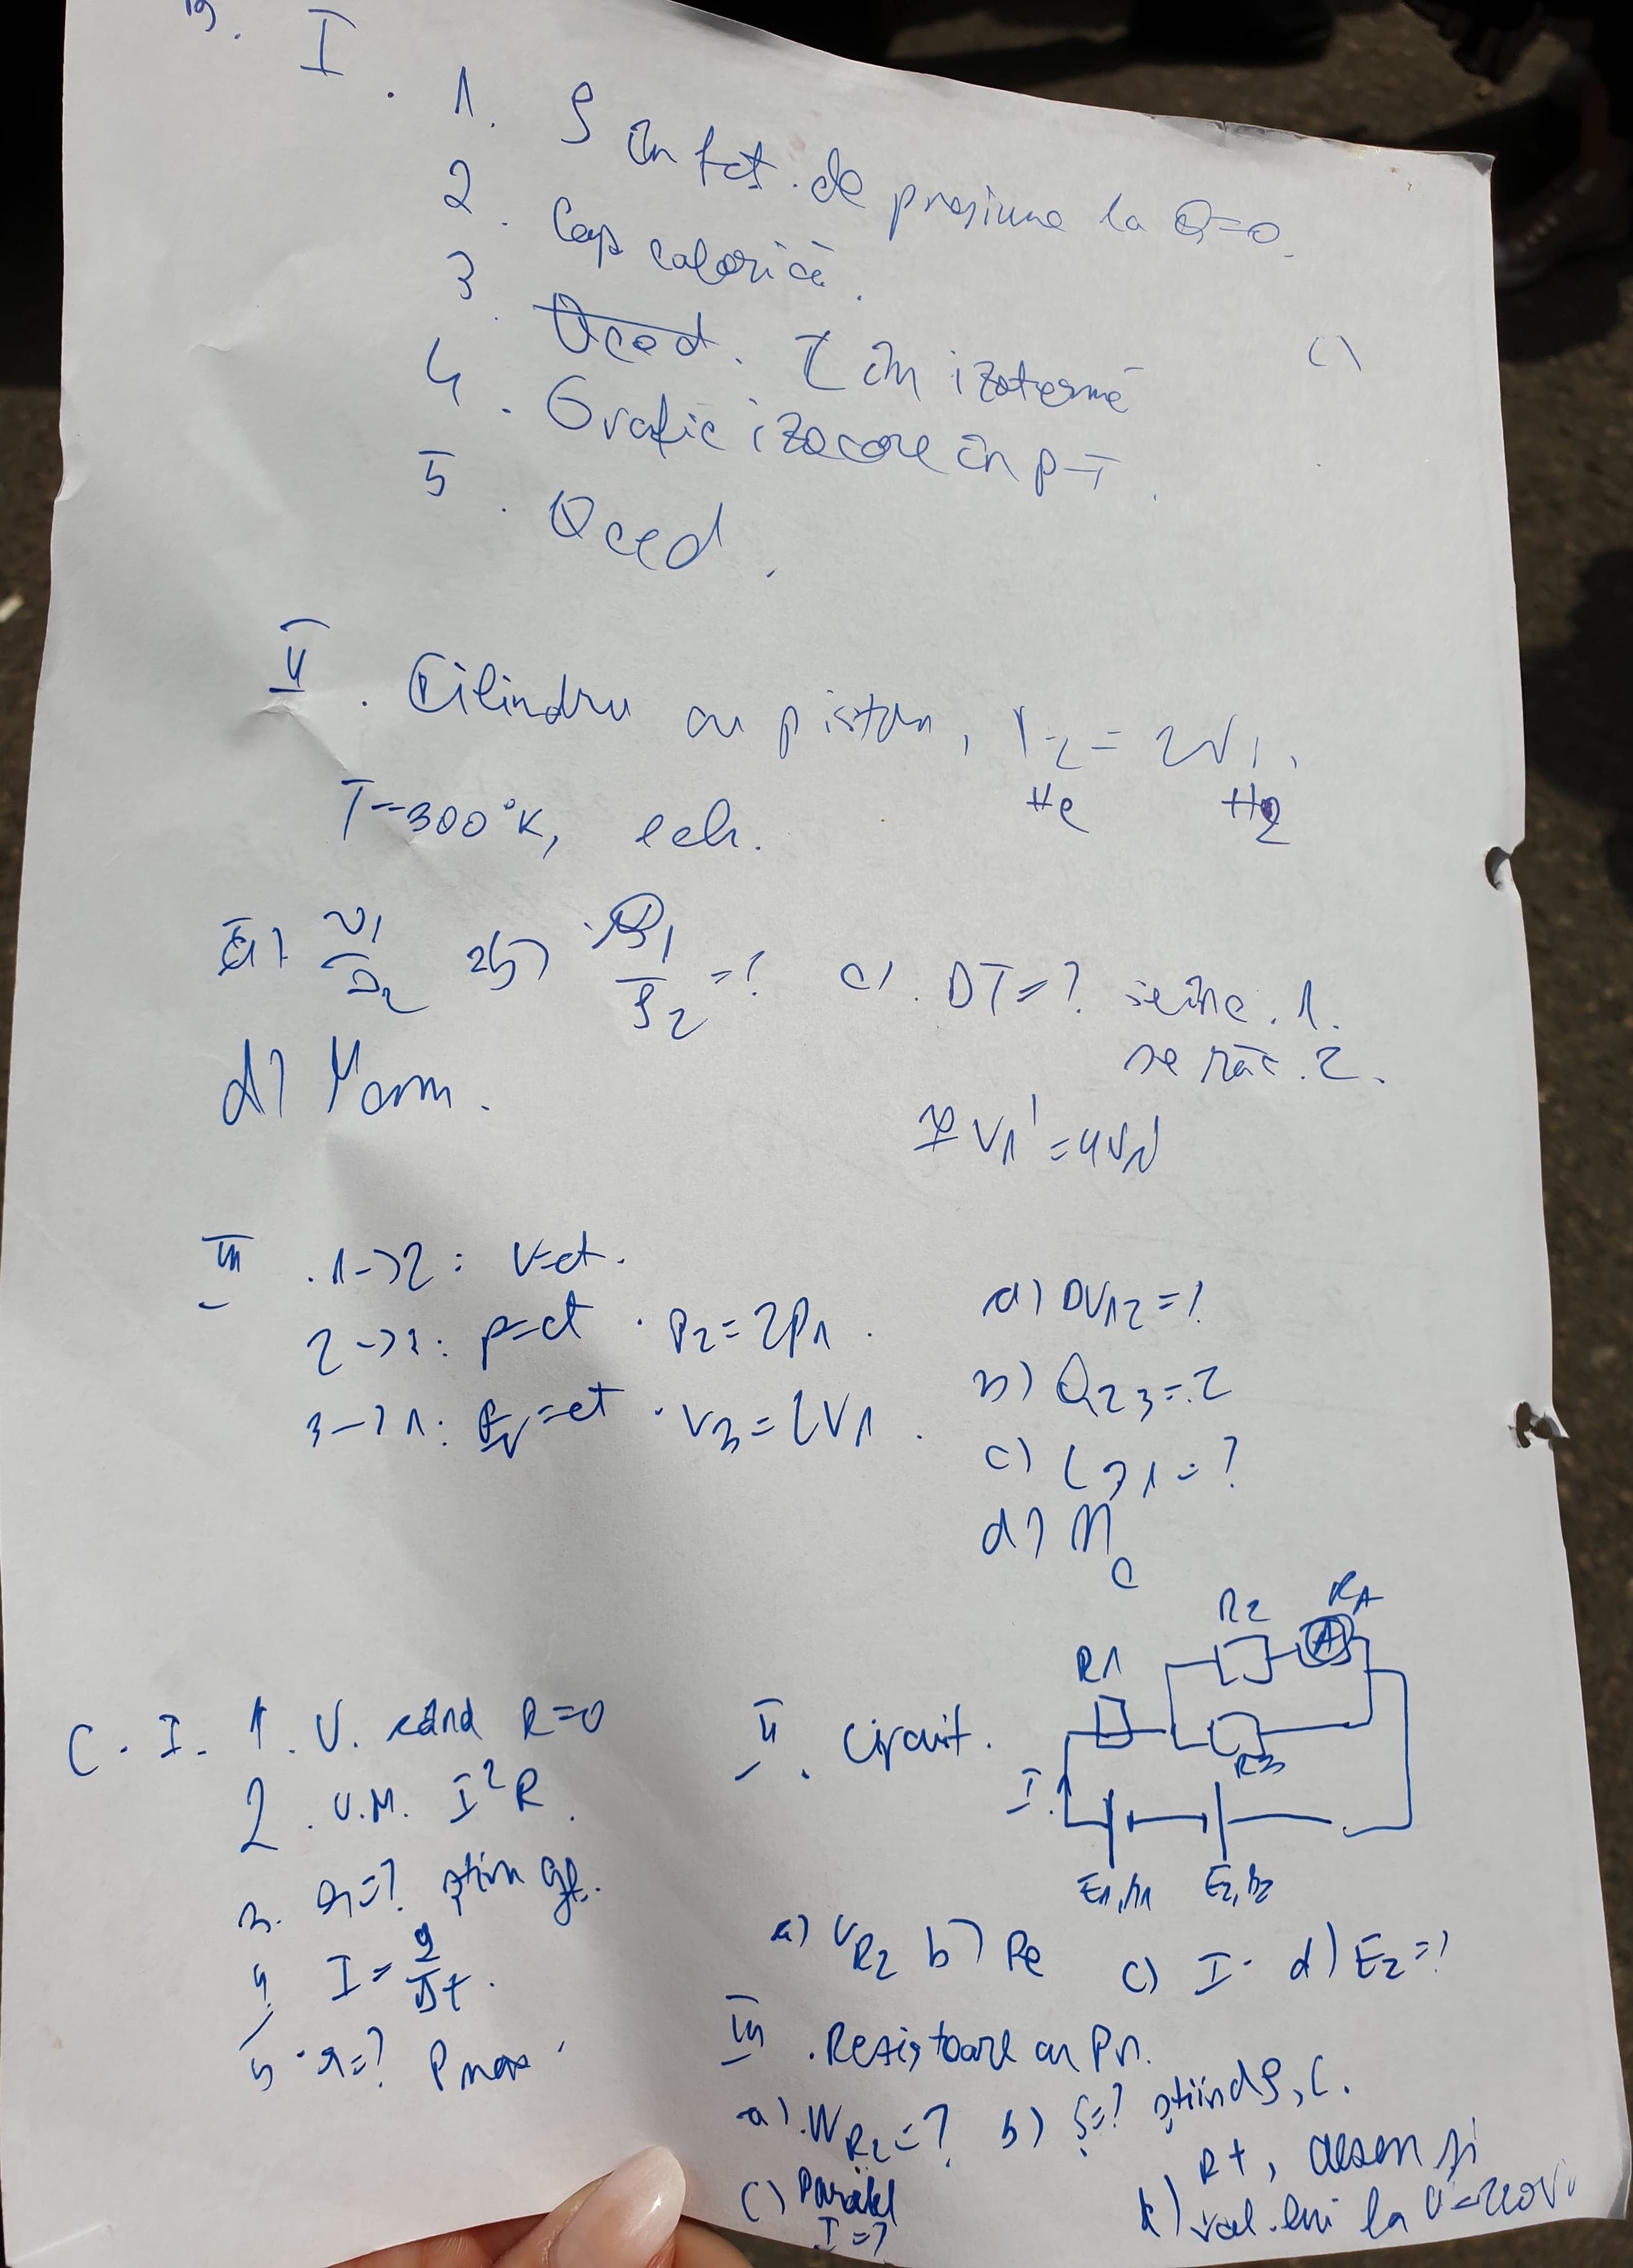 B. I
1. ρ în fct. de presiune la Q=0.
2. Cap calorică.
3. Qced. L în izotermă
4. Grafic izocore în p-T.
5. Qced.
II. Cilindru cu piston, V2 = 2V1.
He H2
T=300°K, ech.
a) ν1/ν2 b) ρ1/ρ2 =? c). DT=? se înc. 1.
se răc. 2.
d) Mam.
V1' = 4V2'
III. 1->2: V=ct.
2->3: p=ct. P2=2P1.
3->1: =ct. V3=2V1.
a) DU12=?
b) Q23=?
c) L31=?
d) ηc
C. I. 1. U. când R=0
2. U.M. I²R.
3. r=? știm gf.
4. I = q/Δt.
5. r=? Pmax.
II. Circuit.
R1 R2 RA
A
R3
I.
E1,r1 E2,r2
a) UR2 b) Re c) I. d) E2=?
III. Rezistoare cu Pn.
a). WR2=? b) S=? știind ρ, L.
c) Paralel
I=?
R+, desen și
d) val. lui la U=220V.